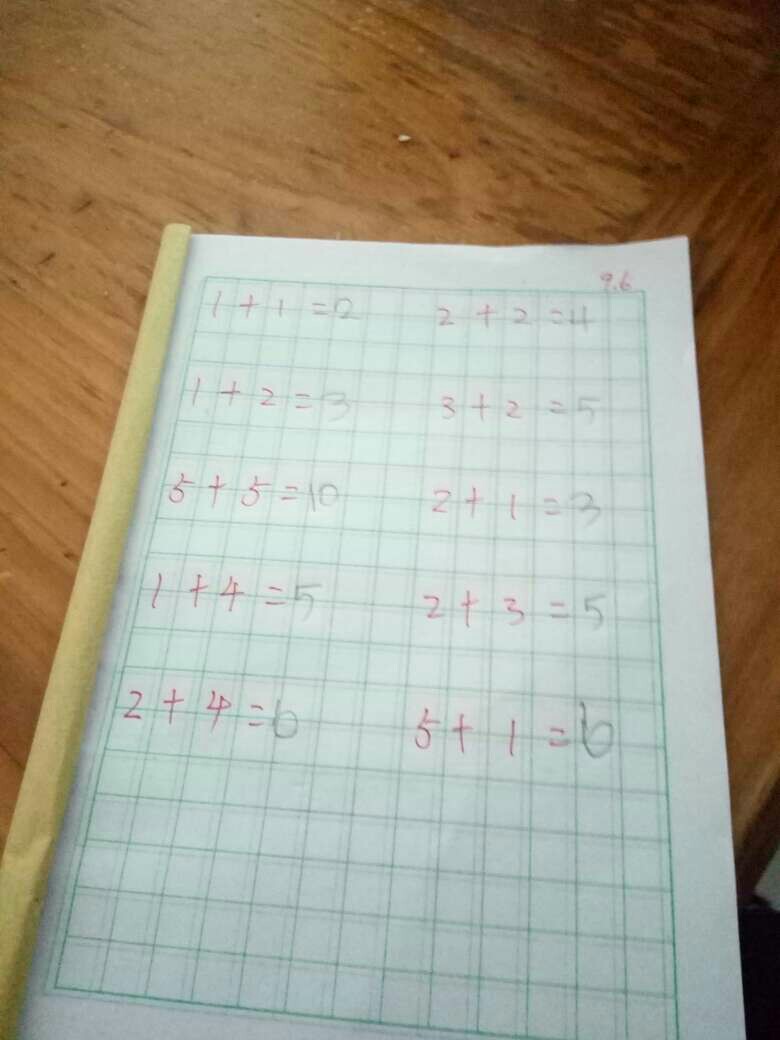 9.6
1+1=2 2+2=4
1+2=3 3+2=5
5+5=10 2+1=3
1+4=5 2+3=5
2+4=6 5+1=6